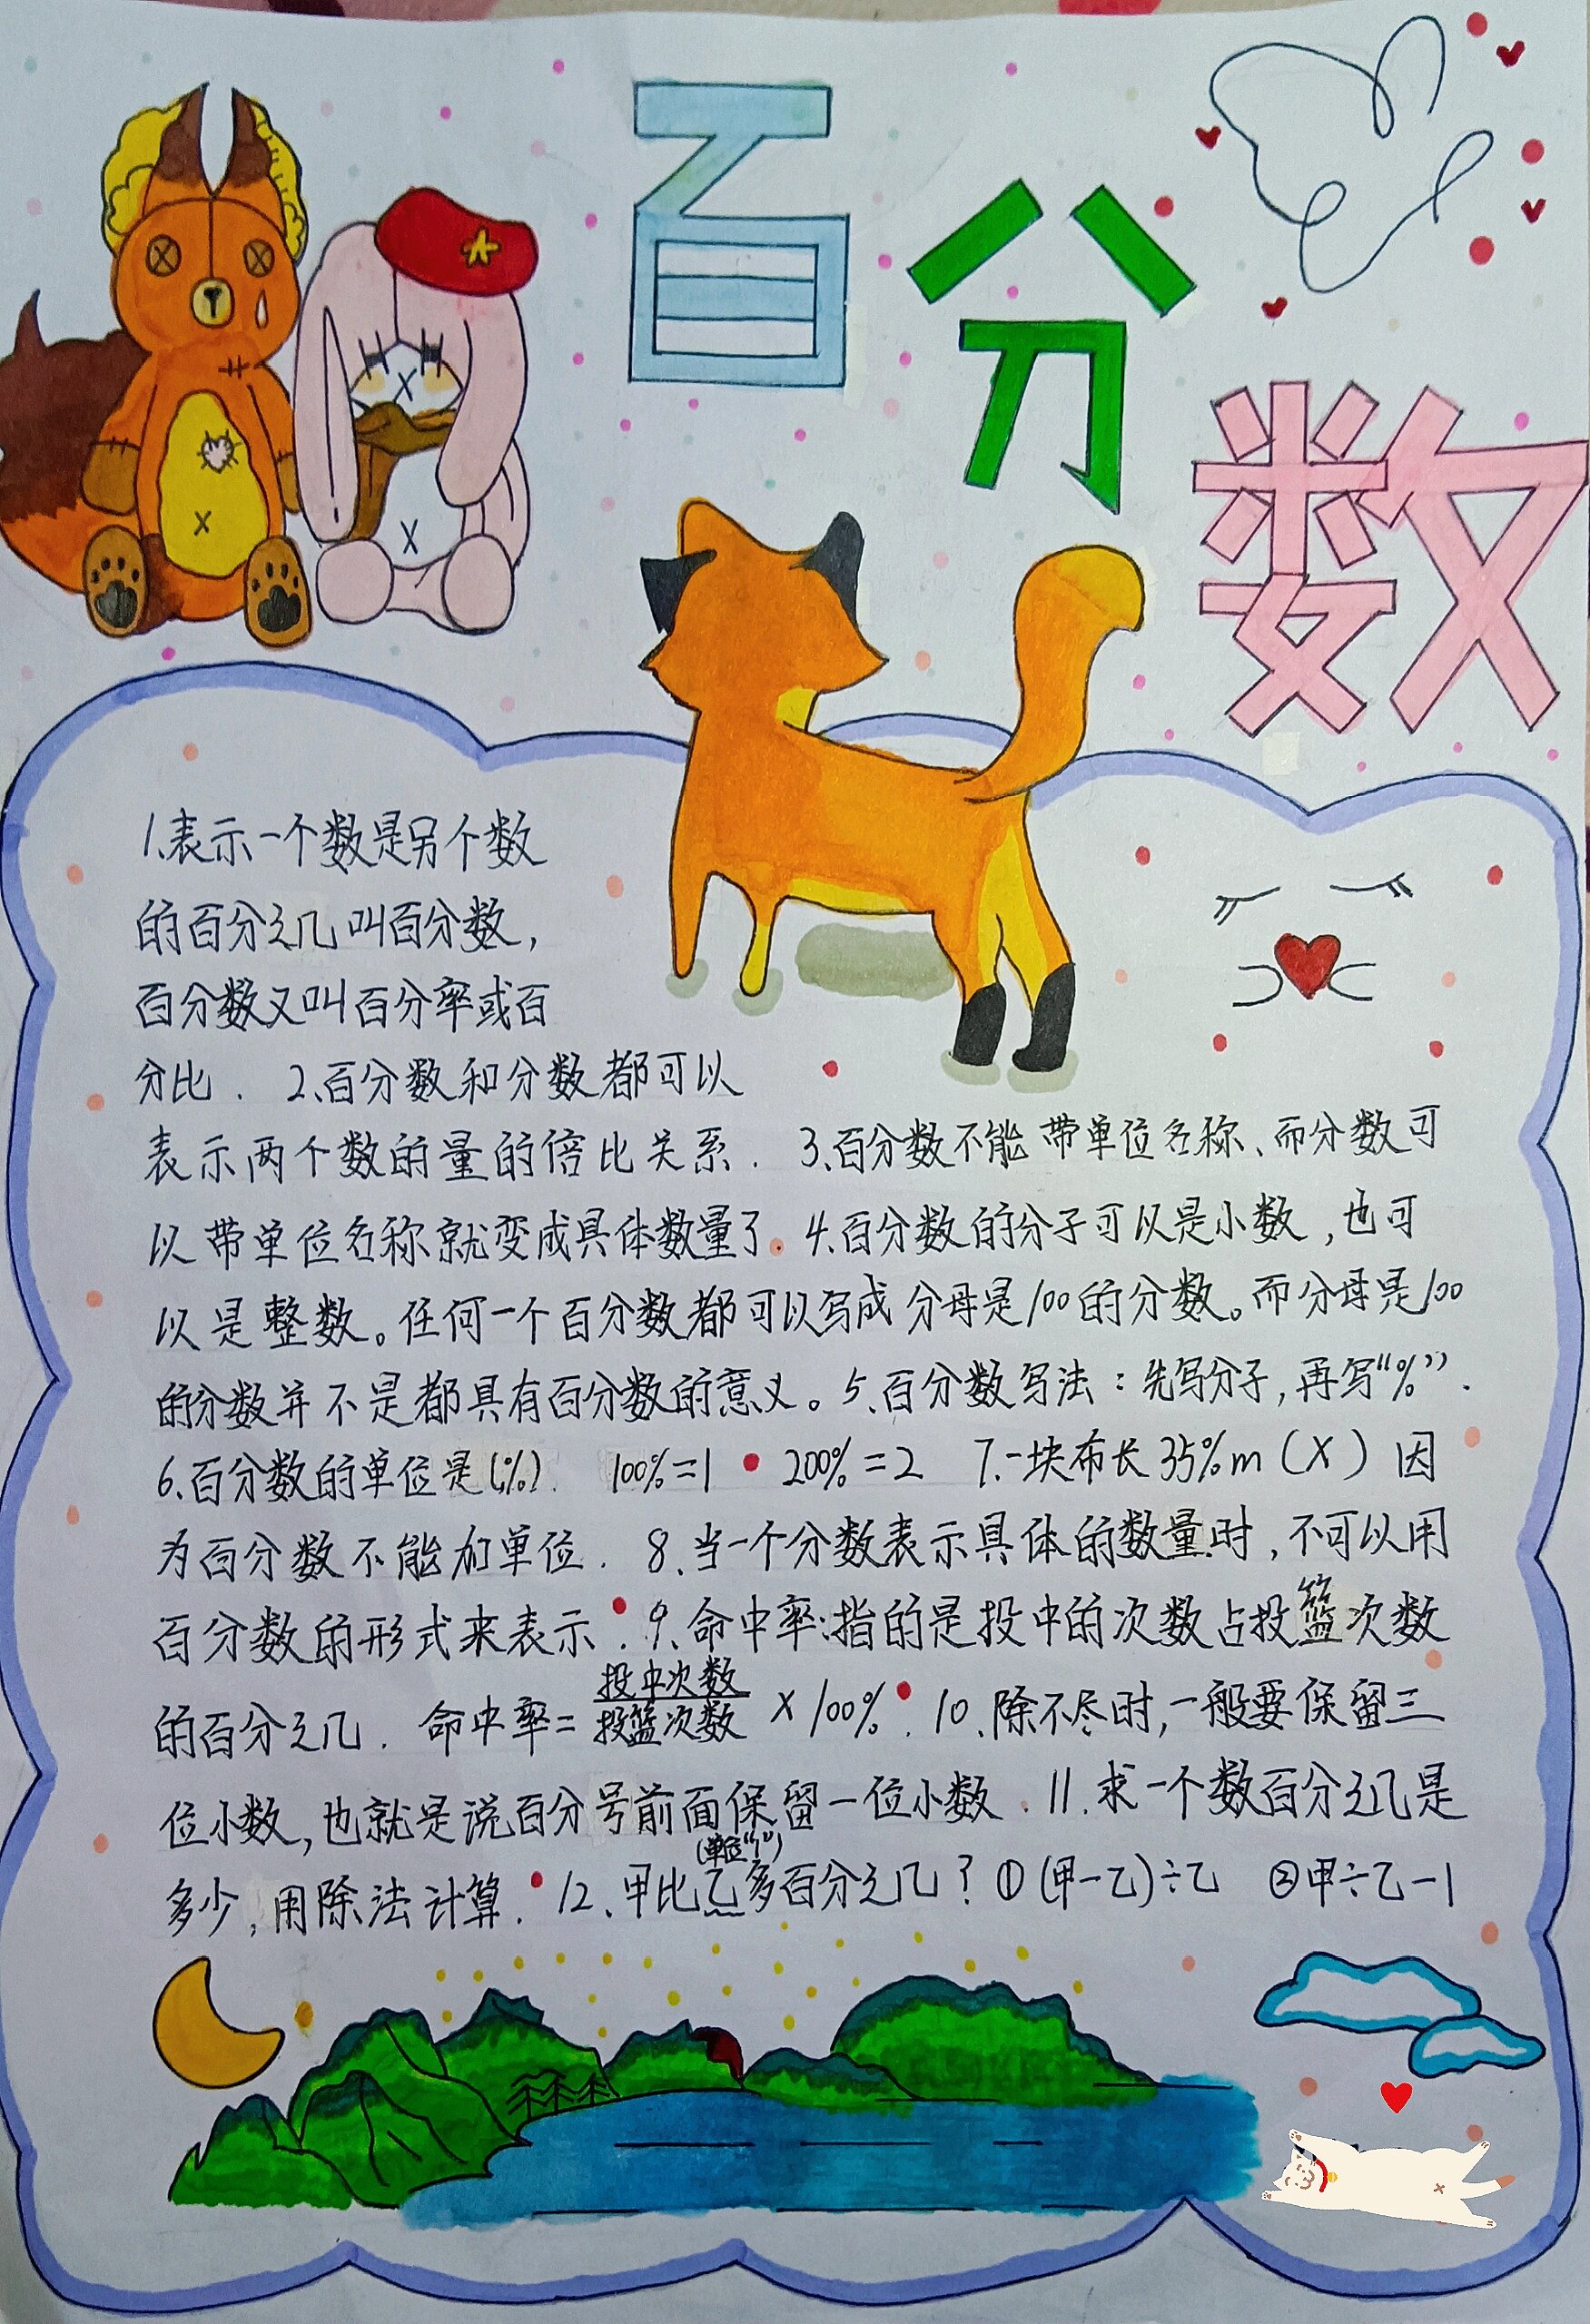 百分数
1.表示一个数是另个数
的百分之几叫百分数,
百分数又叫百分率或百
分比. 2.百分数和分数都可以
表示两个数的量的倍比关系. 3.百分数不能带单位名称、而分数可
以带单位名称就变成具体数量了. 4.百分数的分子可以是小数,也可
以是整数。任何一个百分数都可以写成分母是100的分数。而分母是100
的分数并不是都具有百分数的意义。5.百分数写法:先写分子,再写“%”.
6.百分数的单位是(%). 100%=1 200%=2 7.一块布长35%m(X)因
为百分数不能加单位. 8.当一个分数表示具体的数量时,不可以用
百分数的形式来表示. 9.命中率:指的是投中的次数占投篮次数
的百分之几. 命中率=投中次数/投篮次数×100%. 10.除不尽时,一般要保留三
位小数,也就是说百分号前面保留一位小数. 11.求一个数百分之几是
(单位“1”)
多少,用除法计算. 12.甲比乙多百分之几?①(甲-乙)÷乙 ②甲÷乙-1